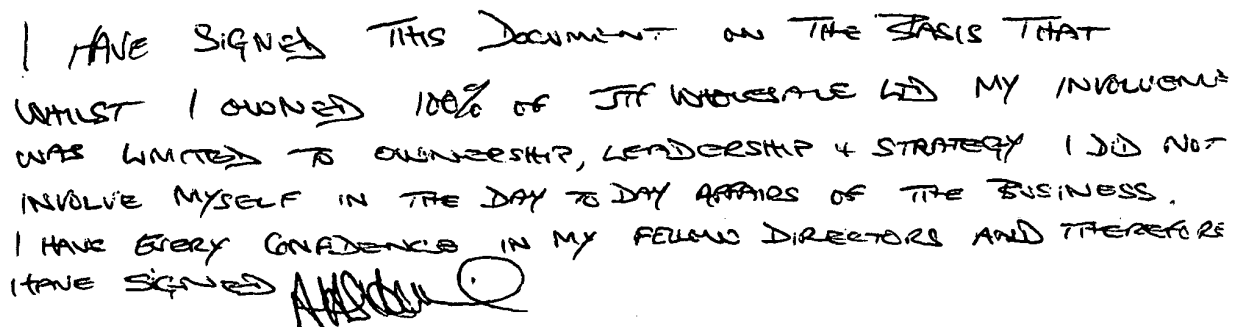 I HAVE SIGNED THIS DOCUMENT ON THE BASIS THAT
WHILST I OWNED 100% OF JTF WHOLESALE LTD MY INVOLVEME
WAS LIMITED TO OWNERSHIP, LEADERSHIP & STRATEGY I DID NOT
INVOLVE MYSELF IN THE DAY TO DAY AFFAIRS OF THE BUSINESS.
I HAVE EVERY CONFIDENCE IN MY FELLOW DIRECTORS AND THEREFORE
HAVE SIGNED